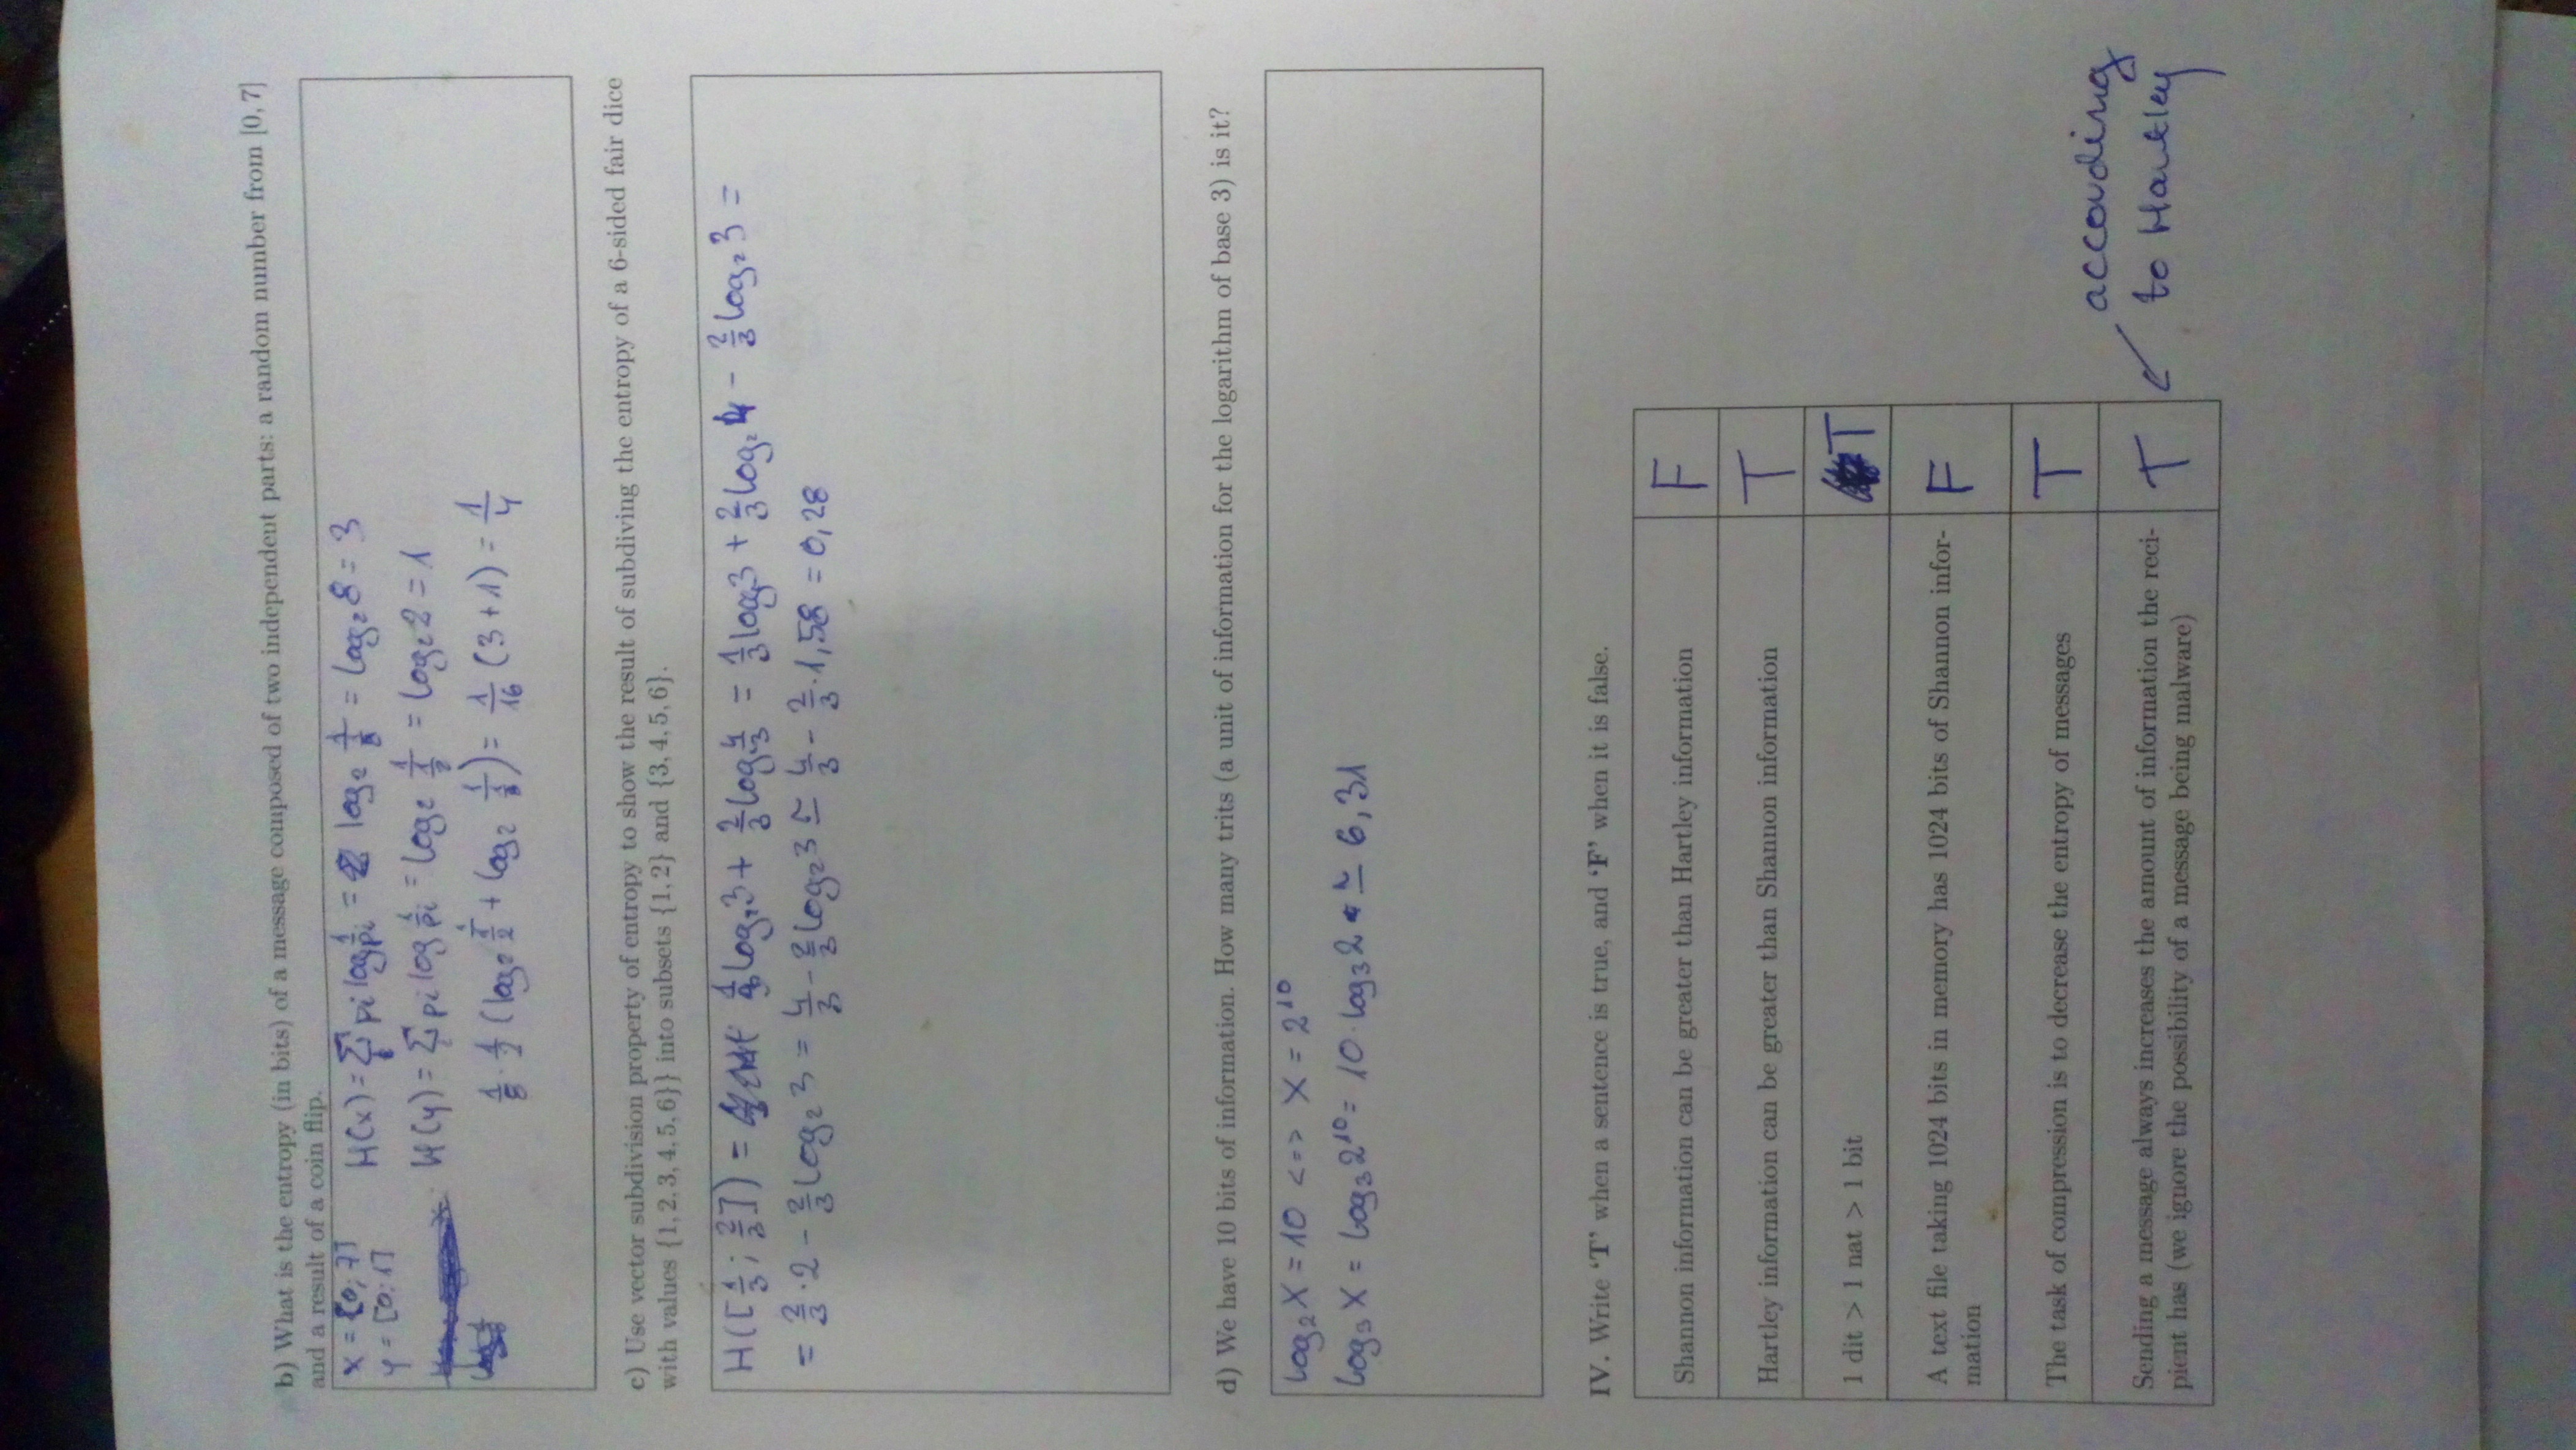 b) What is the entropy (in bits) of a message composed of two independent parts: a random number from [0, 7]
and a result of a coin flip.
x = [0; 7]
y = [0; 1]
H(x) = Σ pi log 1/pi = log₂ 1/(1/8) = log₂ 8 = 3
H(y) = Σ pi log 1/pi = log₂ 1/(1/2) = log₂ 2 = 1
1/8 · 1/2 (log₂ 1/(1/2) + log₂ 1/(1/8)) = 1/16 (3 + 1) = 1/4
c) Use vector subdivision property of entropy to show the result of subdiving the entropy of a 6-sided fair dice
with values {1, 2, 3, 4, 5, 6}} into subsets {1, 2} and {3, 4, 5, 6}.
H([1/3; 2/3]) = 1/3 log₂ 3 + 2/3 log 4/3 = 1/3 log 3 + 2/3 log₂ 4 - 2/3 log₂ 3 =
= 2/3 · 2 - 2/3 log₂ 3 = 4/3 - 2/3 log₂ 3 ≃ 4/3 - 2/3 · 1,58 = 0,28
d) We have 10 bits of information. How many trits (a unit of information for the logarithm of base 3) is it?
log₂ X = 10 <=> X = 2¹⁰
log₃ X = log₃ 2¹⁰ = 10 · log₃ 2 ≃ 6,31
IV. Write ‘T’ when a sentence is true, and ‘F’ when it is false.
Shannon information can be greater than Hartley information F
Hartley information can be greater than Shannon information T
1 dit > 1 nat > 1 bit T
A text file taking 1024 bits in memory has 1024 bits of Shannon infor-
mation F
The task of compression is to decrease the entropy of messages T
Sending a message always increases the amount of information the reci-
pient has (we ignore the possibility of a message being malware) T
according
to Hartley